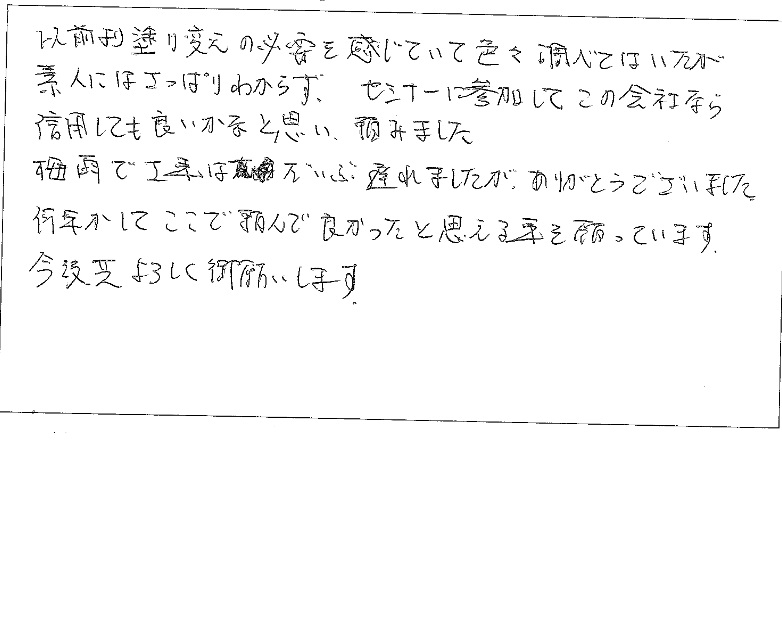 以前より塗り変えの必要を感じていて色々調べてはいたが
素人にはさっぱりわからず、セミナーに参加して、この会社なら
信用しても良いかなと思い、頼みました
梅雨で工事はだいぶ遅れましたが、ありがとうございました
何年かしてここで頼んで良かったと思える事を願っています。
今後共よろしく御願いします。